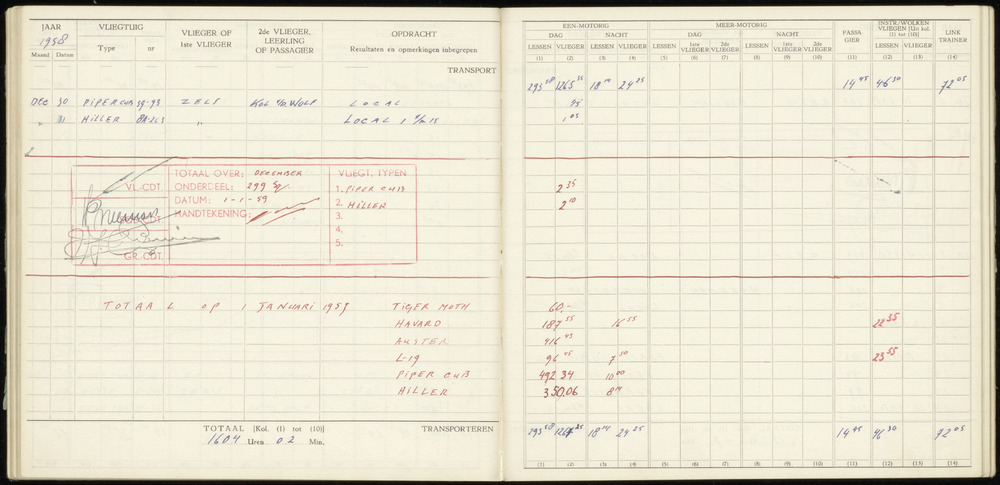 JAAR
1958
Maand Datum
VLIEGTUIG
Type nr
VLIEGER OF
1ste VLIEGER
2de VLIEGER,
LEERLING
OF PASSAGIER
OPDRACHT
Resultaten en opmerkingen inbegrepen
TRANSPORT
Dec 30 PIPERCUB 59-93 ZELF KOL v/d WOLF LOCAL
" 31 HILLER " LOCAL
TOTAAL OVER: DECEMBER
ONDERDEEL: 299 Sq.
DATUM: 1-1-59
HANDTEKENING:
VL.CDT.
GR.CDT.
VLIEGT. TYPEN
1. PIPER CUB
2. HILLER
3.
4.
5.
TOTAAL OP 1 JANUARI 1959 TIGER MOTH
HAVARD
AUSTER
L-19
PIPER CUB
HILLER
TOTAAL [Kol. (1) tot (10)] TRANSPORTEREN
1604 Uren 02 Min.
EEN-MOTORIG MEER-MOTORIG
DAG NACHT DAG NACHT
LESSEN VLIEGER LESSEN VLIEGER LESSEN 1ste VLIEGER 2de VLIEGER LESSEN 1ste VLIEGER 2de VLIEGER
PASSA
GIER
INSTR./WOLKEN
VLIEGEN [Uit kol.
(1) tot (10)]
LESSEN VLIEGER
LINK
TRAINER
(1) (2) (3) (4) (5) (6) (7) (8) (9) (10) (11) (12) (13) (14)
293 58 1265 35 18 14 24 25 14 45 46 30 72 05
45
1 05
2 35
2 10
60.-
187 55 16 55 22 35
416 45
96 45 7 30 23 55
492 34 10 00
350.06 8 14
293 58 18 14 24 25 14 45 46 30 72 05
(1) (2) (3) (4) (5) (6) (7) (8) (9) (10) (11) (12) (13) (14)